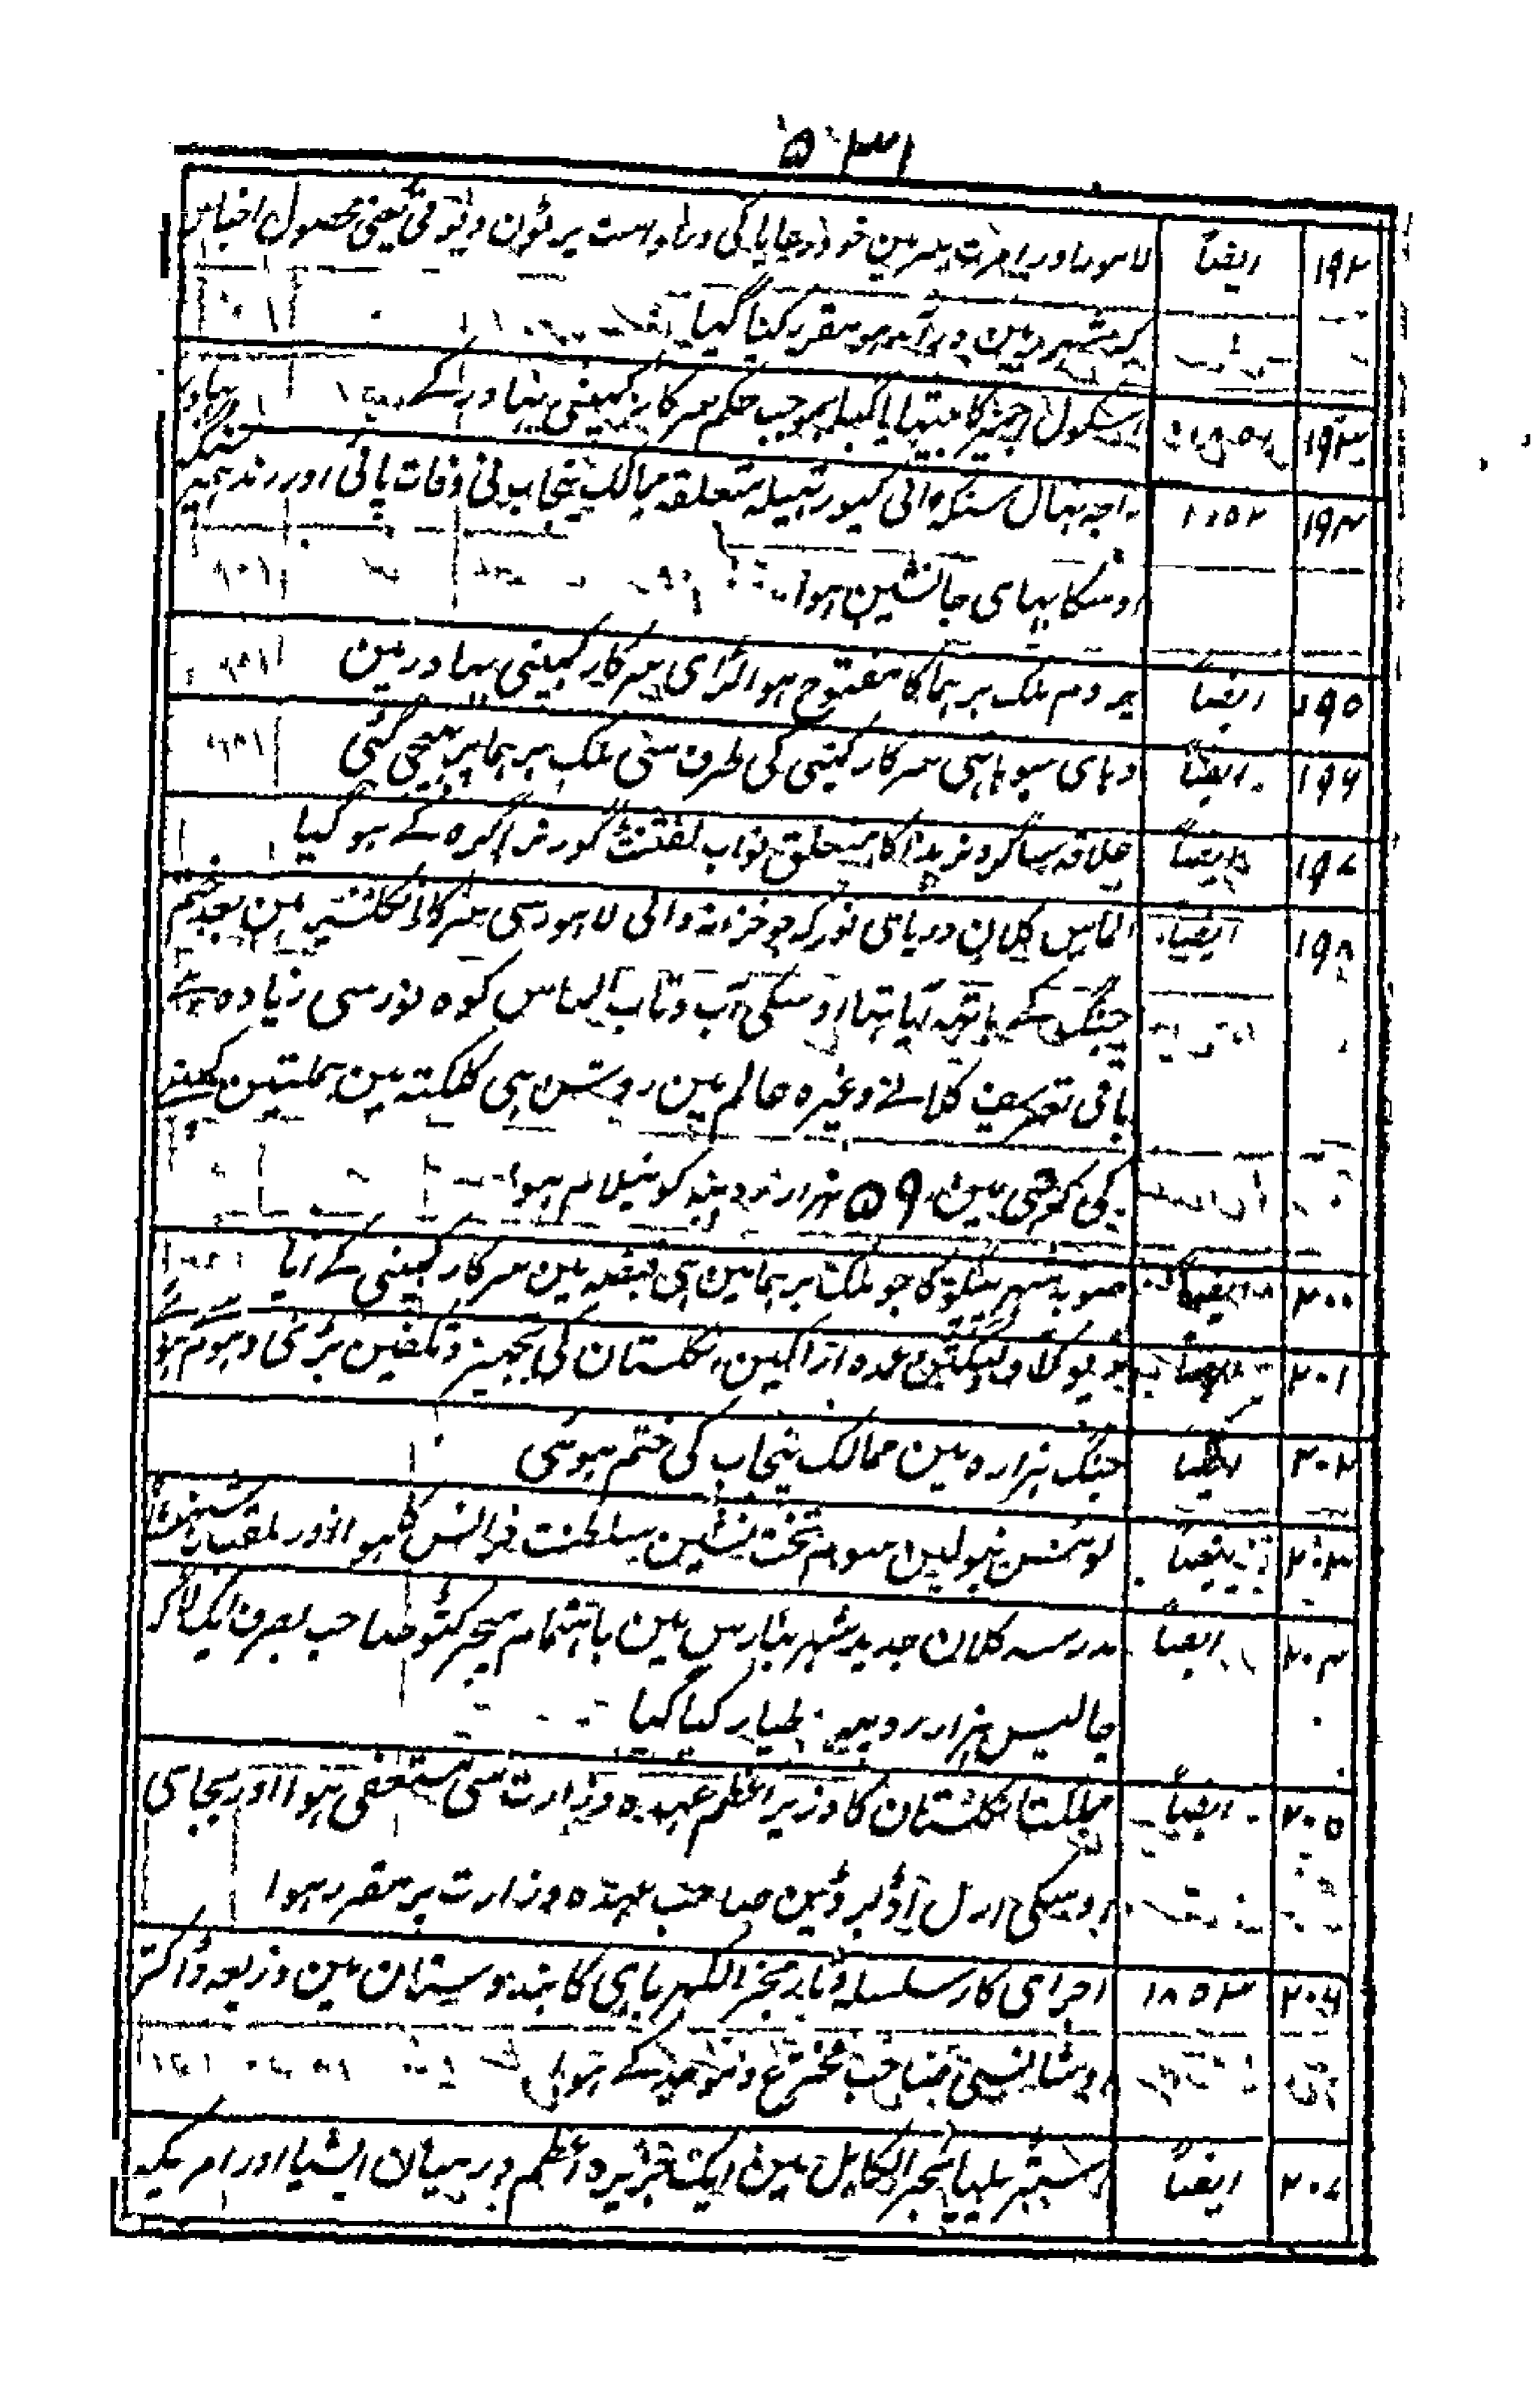 ۵۳۱
۱۹۲ ایضاً لاہور اور امرت سر مین خود رعایا کی درخواست پر ٹون ڈیوٹی یعنی محصول اجناس
کہ شہر مین در آمد ہو مقرر کیا گیا
۱۹۳ اسکول انجنیر کا بموجب حکم سرکار کمپنی بہادر کے
۱۹۴ ۱۸۵۲ راجہ نہال سنگہ والی کپورتہلہ متعلقہ ممالک پنجاب نی وفات پائی اور رندہیر سنگہ
اوسکا بہای جانشین ہوا
۱۹۵ ایضاً پردم ملک برہما کا مفتوح ہوا لڑای سرکار کمپنی بہادر مین
۱۹۶ ایضاً سرکار کمپنی کی طرف سی ملک برہما پر بہیجی گئی
۱۹۷ ایضاً علاقہ ساگر و نربدا کا متعلق نواب لفٹننٹ گورنر اگرہ کے ہو گیا
۱۹۸ ایضاً الماس کلان دریای نور کہ جو خزانہ والی لاہور سی سرکار انگلشیہ مین بعد ختم
جنگ کے ہاتہہ آیا تہا اوسکی آب و تاب الماس کوہ نور سی زیادہ ہی
باقی تعریف کلانے وغیرہ عالم مین روشن ہی کلکتہ مین ہملٹین کمپنی
کی کوٹھی مین ۵۹ ہزار روپیہ کو نیلام ہوا
۲۰۰ ایضاً صوبہ شہر پیگو کا جو ملک برہما مین ہی قبضہ مین سرکار کمپنی کے آیا
۲۰۱ ایضاً ڈیوک آف ولنگٹن عمدہ اراکین انگلستان کی تجہیز و تکفین بڑی دہوم سی ہوی
۲۰۲ ایضاً جنگ ہزارہ مین ممالک پنجاب کی ختم ہوئی
۲۰۳ ایضاً لوئس نپولین سوم تخت نشین سلطنت فرانس کا ہوا اور ملقب بہ شہنشاہ
۲۰۴ ایضاً مدرسہ کلان جدید شہر بنارس مین باہتمام میجر کٹو صاحب بصرف ایک لاکہ
چالیس ہزار روپیہ طیار کیا گیا
۲۰۵ ایضاً مملکت انگلستان کا وزیر اعظم عہدہ وزارت سی مستعفی ہوا اور بجای
اوسکی ارل آف ابرڈین صاحب عہدہ وزارت پر مقرر ہوا
۲۰۶ ۱۸۵۳ اجرای کار سلسلہ و تار کہربای کا ہندوستان مین ذریعہ ڈاکتر
اوشانسی صاحب مخترع و موجد کے ہوی
۲۰۷ ایضاً اسٹریلیا بحر الکاہل مین ایک جزیرہ اعظم درمیان ایشیا اور امریکہ